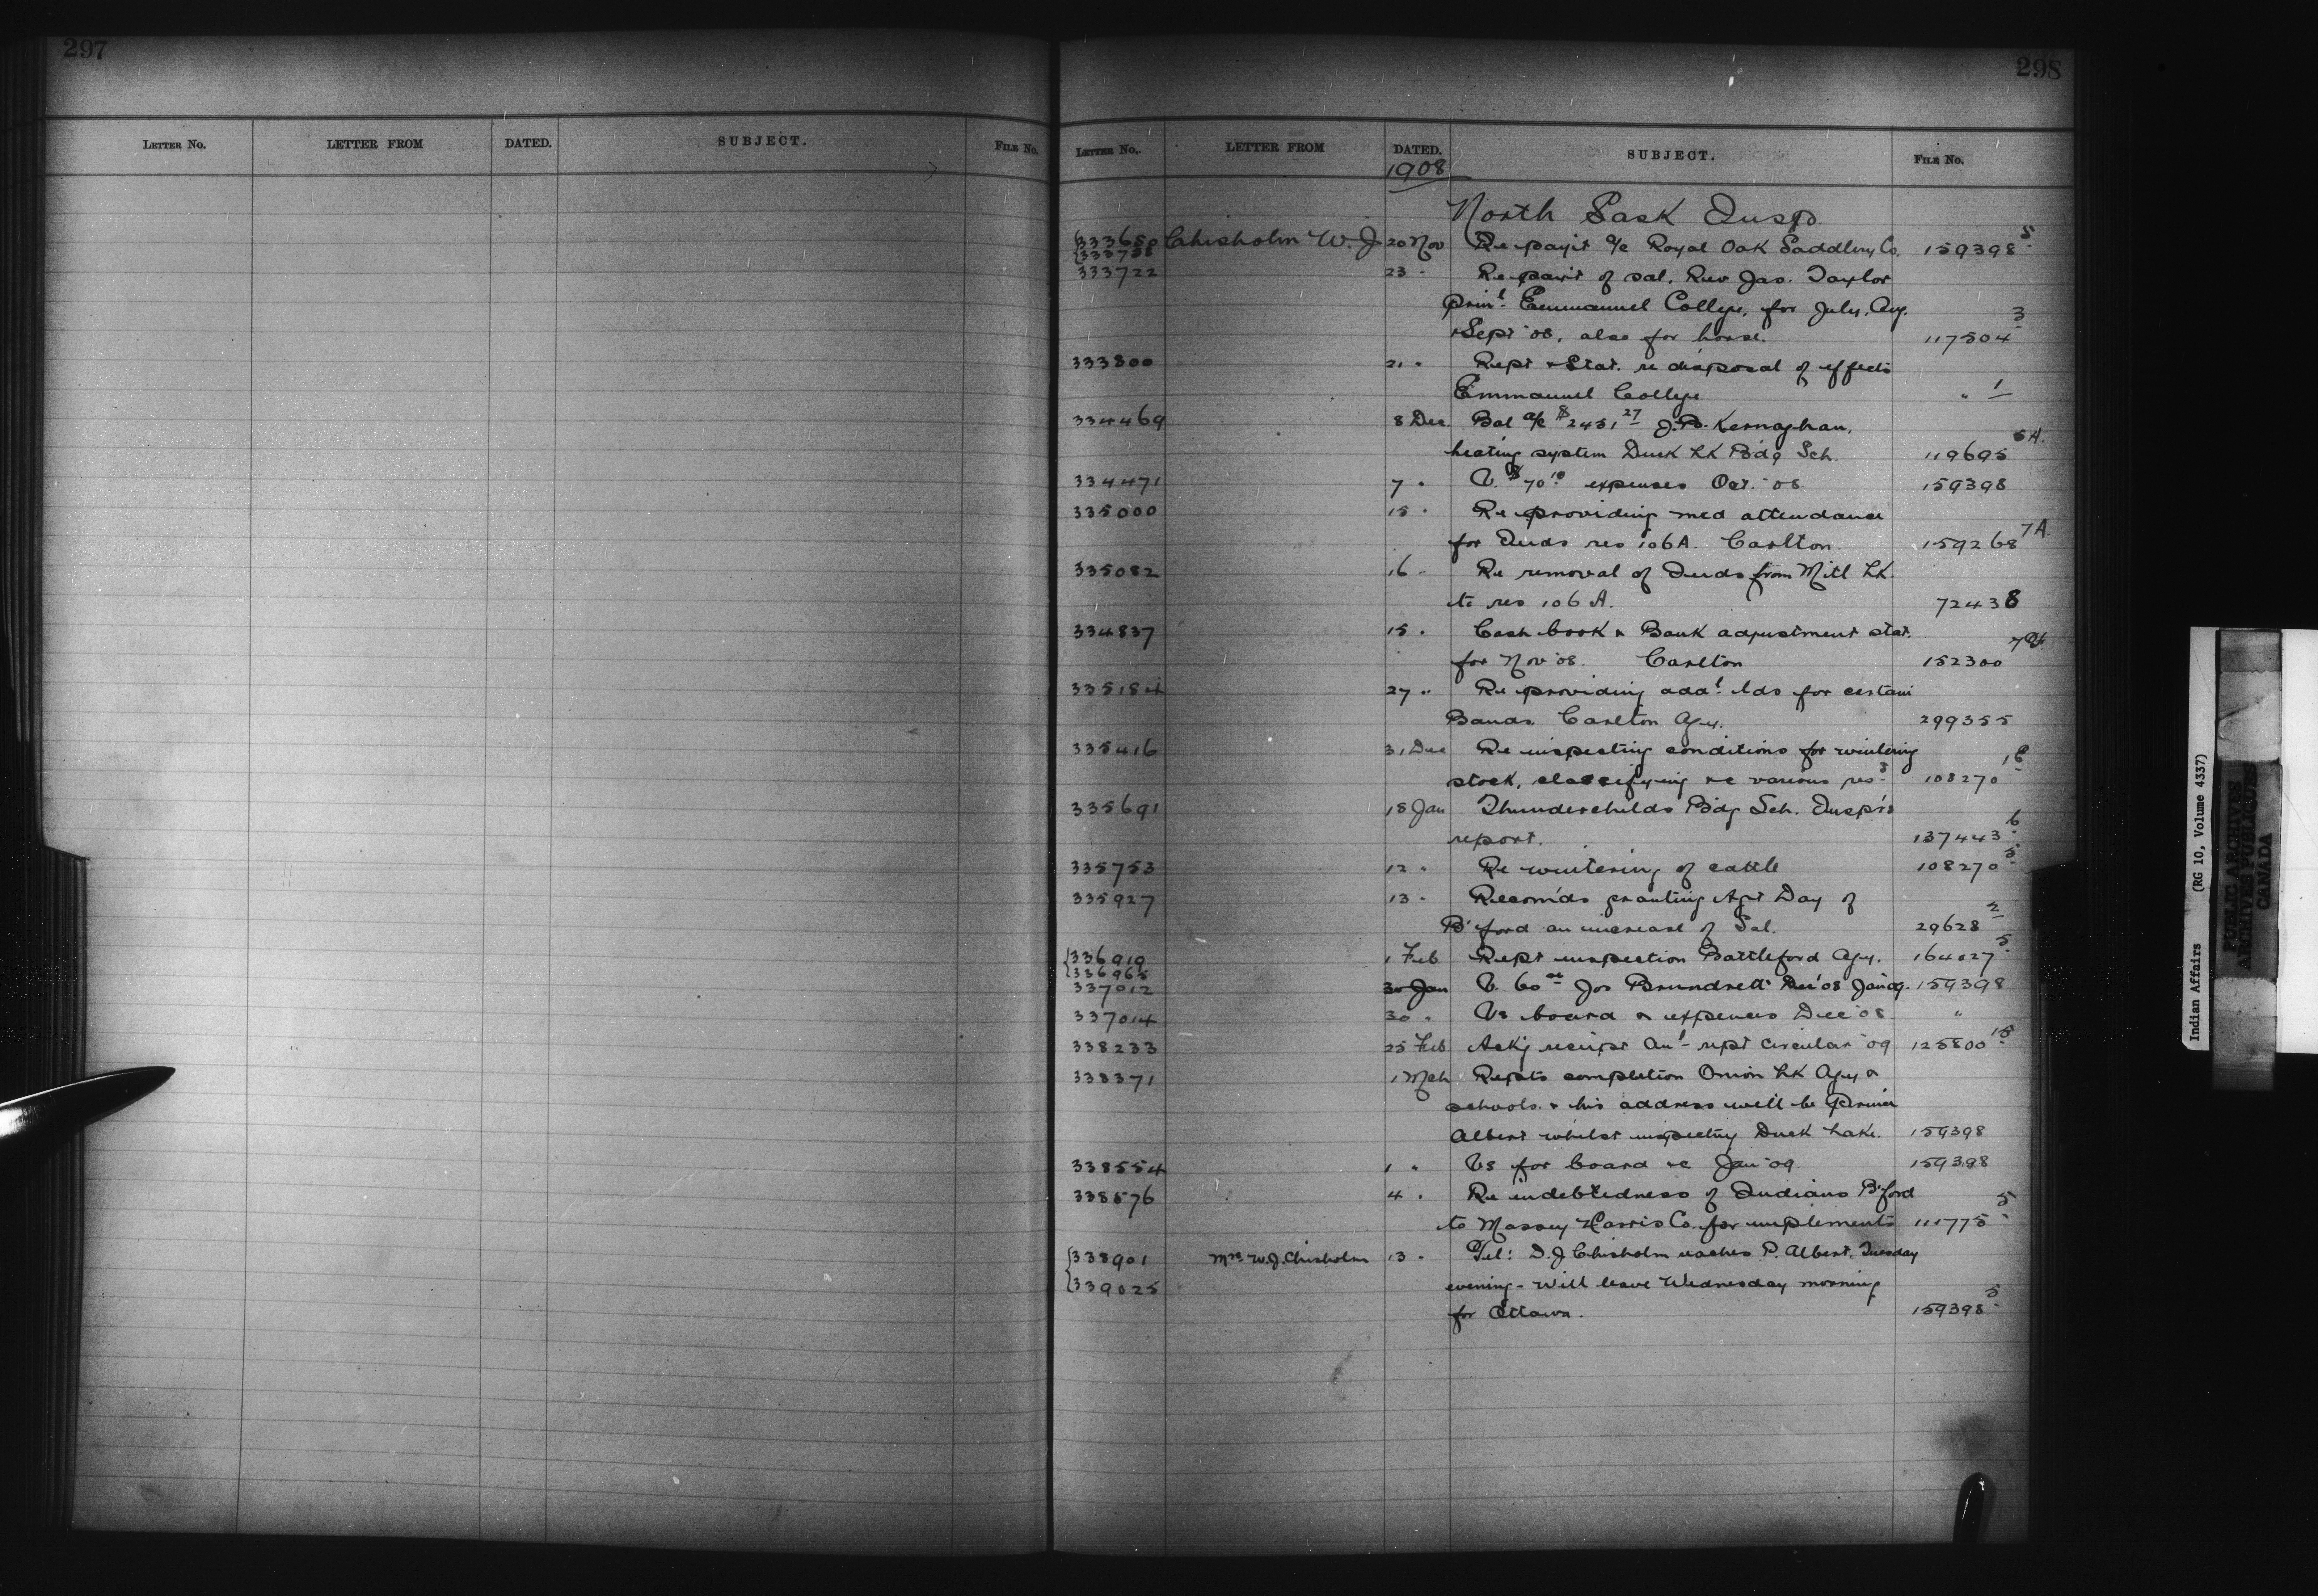 297
298
LETTER NO. LETTER FROM DATED. SUBJECT. FILE NO.
LETTER NO. LETTER FROM DATED. SUBJECT. FILE NO.
1908
North Sask Insp.
333650 Chisholm W. J 20 Nov Re paymt a/c Royal Oak Saddlery Co. 159398 5
333738
333722 23 " Re paymt of sal. Rev Jas. Taylor
prinl Emmanuel College, for July, Aug. 3
& Sept '08, also for horse. 117504
333800 21 " Rept & Stat. re disposal of effects
Emmanuel College " 1
334469 8 Dec Bal a/c $2451 27 J.B. Kernaghan,
heating system Duck Lk Bdg Sch. 119695 5A.
334471 7 " V. $70 10 expenses Oct. '08 159398
335000 15 " Re providing med attendance
for Inds res 106A. Carlton. 159268 7A.
335082 16 " Re removal of Inds from Mitl Lk.
to res 106 A. 72438
334837 15 " Cash book & Bank adjustment stat.
for Nov '08. Carlton 152300
335184 27 " Re providing addl lds for certain
Bands. Carlton Agy. 299355
335416 31 Dec Re inspecting conditions for wintering
stock, classifying &c various ress 108270
335691 18 Jan Thunderchilds Bdg Sch. Insp'rs
report. 137443 6
335753 12 " Re wintering of cattle 108270 5
335927 13 " Recom'ds granting Agt Day of
B'ford an increase of Sal. 29628 2
336919 1 Feb Rept inspection Battleford Agy. 164027 5
336965
337012 30 Jan V. 60 00 Jos Brundrett Dec '08 Jan '09. 159398
337014 30 " Vs board & expenses Dec '08 "
338233 25 Feb Ackg receipt Anl rept circular '09 125800 15
338371 1 Mch Repts completion Onion Lk Agy &
schools. & his address will be Prince
Albert whilst inspecting Duck Lake. 159398
338554 1 " Vs for board &c Jan '09. 159398
338576 4 " Re indebtedness of Indians B'ford
to Massey Harris Co. for implements 111775 5
338901 Mrs W.J. Chisholm 13 " Tel: D.J Chisholm reaches P. Albert, Tuesday
339025 evening - will leave Wednesday morning
for Ottawa. 159398 5
Indian Affairs (RG 10, Volume 4337)
PUBLIC ARCHIVES
ARCHIVES PUBLIQUES
CANADA